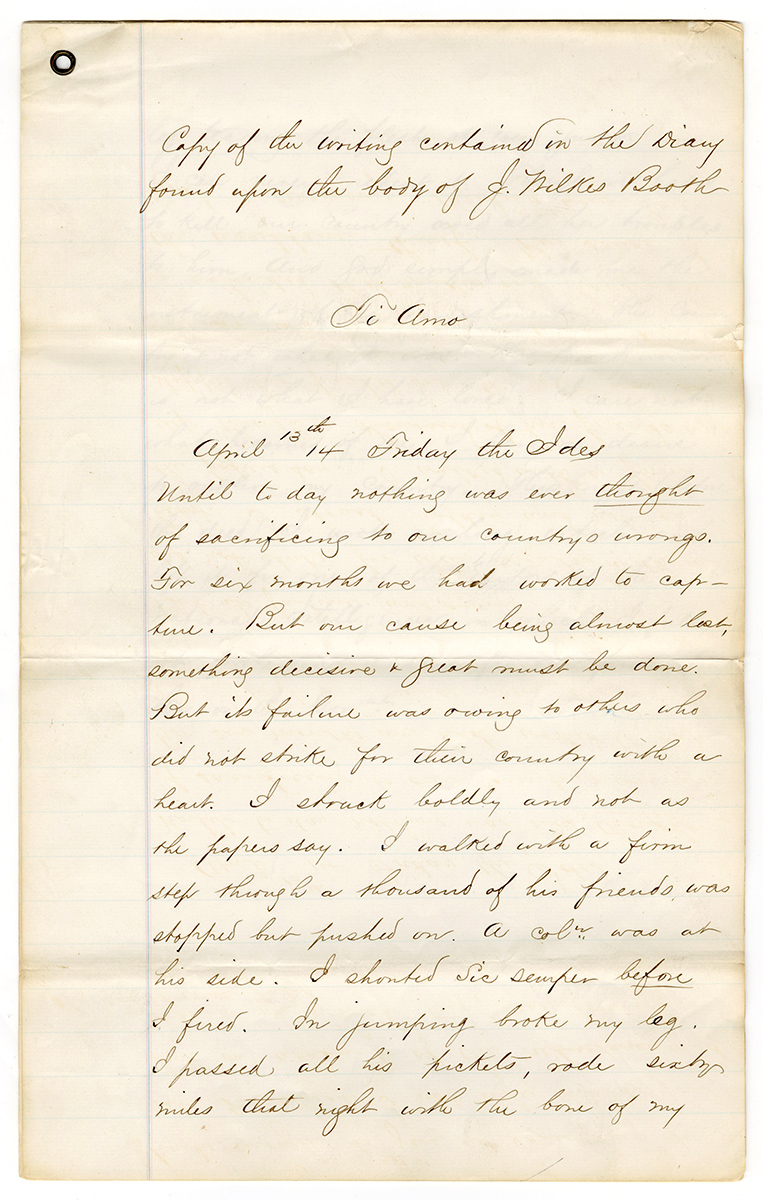 Copy of the writing contained in the Diary
found upon the body of J. Wilkes Booth
Ti Amo
April 13th 14 Friday the Ides
Until to day nothing was ever thought
of sacrificing to our country's wrongs.
For six months we had worked to cap-
ture. But our cause being almost lost,
something decisive & great must be done.
But its failure was owing to others who
did not strike for their country with a
heart. I struck boldly and not as
the papers say. I walked with a firm
step through a thousand of his friends, was
stopped but pushed on. A coln. was at
his side. I shouted Sic semper before
I fired. In jumping broke my leg.
I passed all his pickets, rode sixty
miles that night with the bone of my